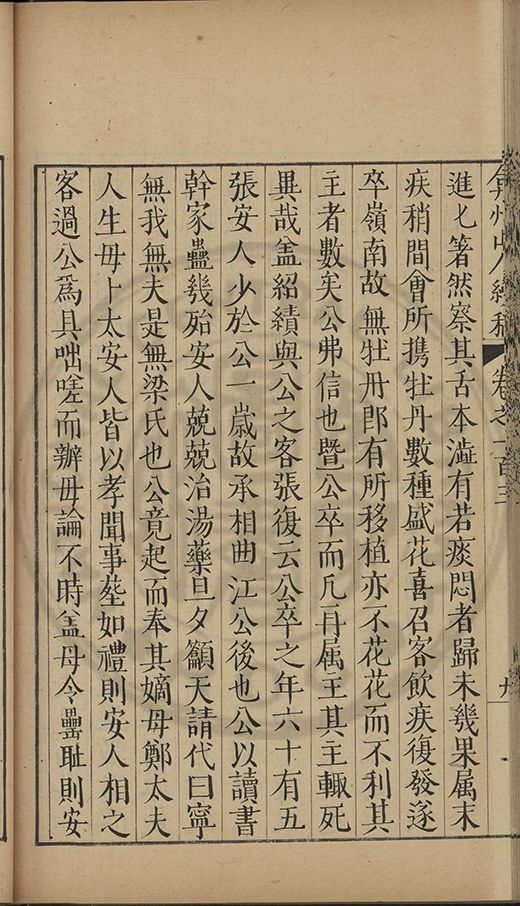 弇州山人續稿 卷之一百三 九
進匕箸然察其舌本澁有若痰悶者歸未幾果属末
疾稍間會所携牡丹數種盛花喜召客飲疾復發遂
卒嶺南故無牡丹郎有所移植亦不花花而不利其
主者數矣公弗信也曁公卒而凡再属主其主輙死
異哉盖紹績與公之客張復云公卒之年六十有五
張安人少於公一歳故承相曲江公後也公以讀書
幹家蠱幾殆安人兢兢治湯藥旦夕籲天請代曰寧
無我無夫是無梁氏也公竟起而奉其嫡母鄭太夫
人生母卜太安人皆以孝聞事塟如禮則安人相之
客過公爲具咄嗟而辦毋論不時盖母令罍耻則安